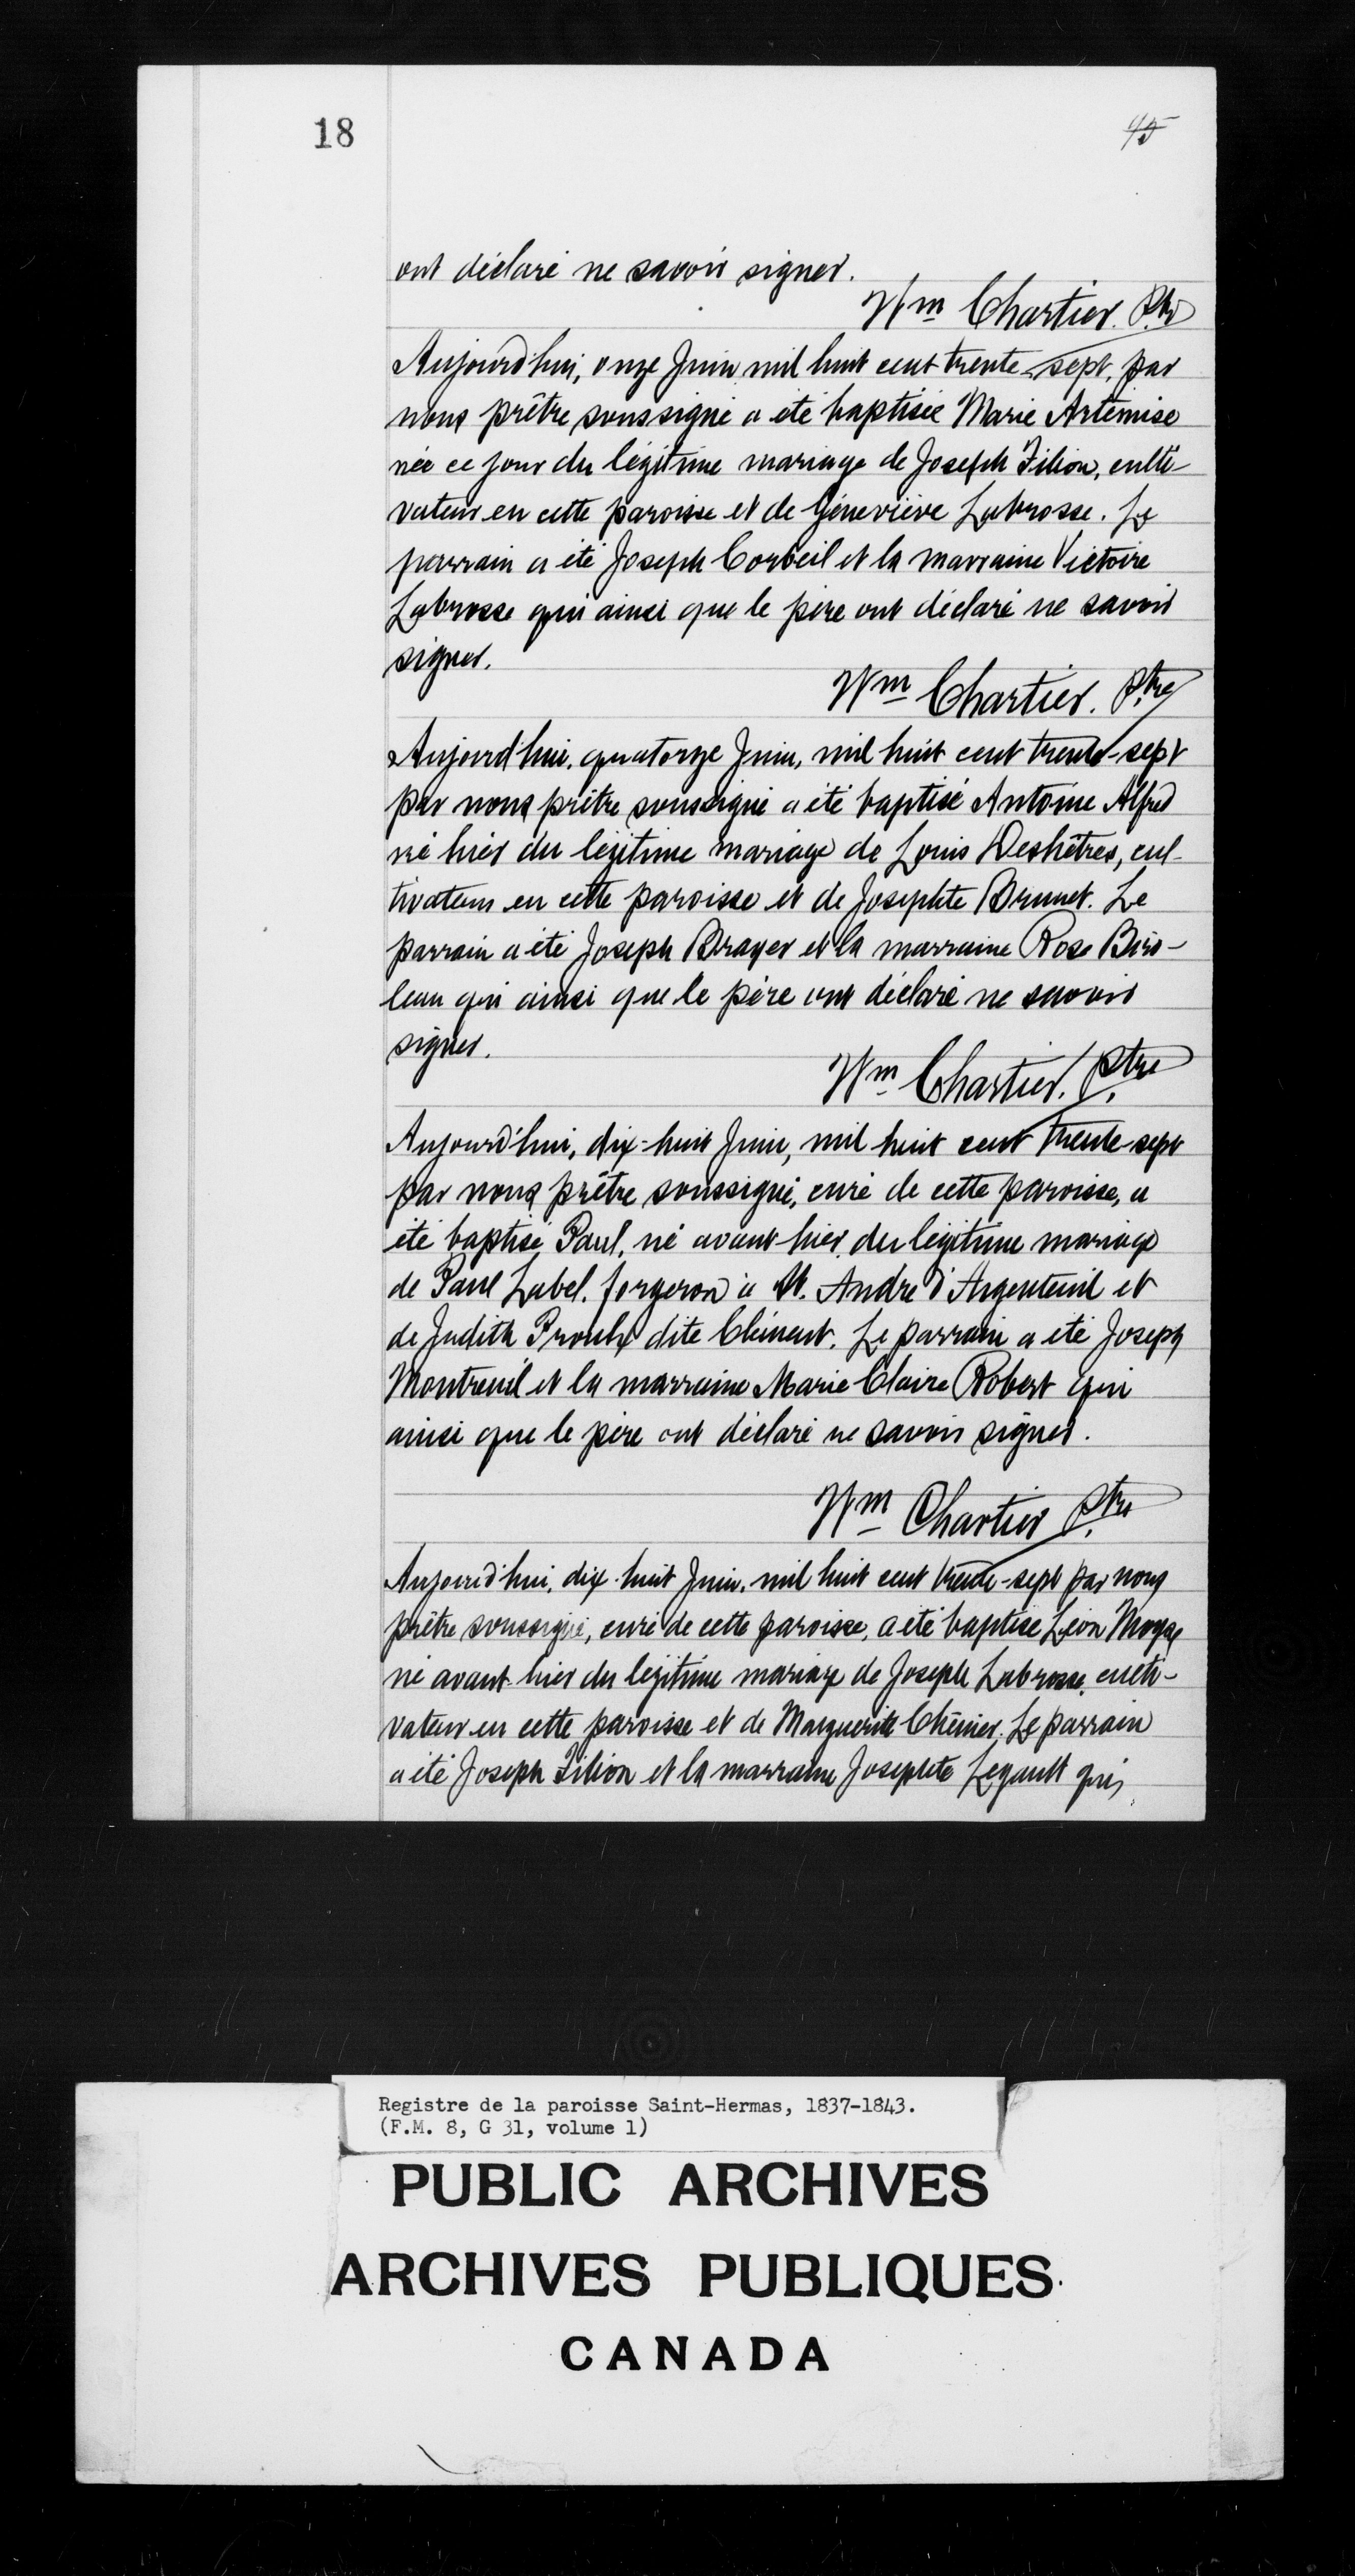 18
45
ont déclaré ne savoir signer.
Wm Chartier. Ptre
Aujourd'hui, onze Juin mil huit cent trente-sept, par
nous prêtre soussigné a été baptisée Marie Artémise
née ce jour du légitime mariage de Joseph Filion, culti-
vateur en cette paroisse et de Géneviève Labrosse. Le
parrain a été Joseph Corbeil et la marraine Victoire
Labrosse qui ainsi que le père ont déclaré ne savoir
signer.
Wm Chartier. Ptre
Aujourd'hui, quatorze Juin, mil huit cent trente-sept
par nous prêtre soussigné a été baptisé Antoine Alfred
né hier du légitime mariage de Louis Deshêtres, cul-
tivateur en cette paroisse et de Josephte Brunet. Le
parrain a été Joseph Brayer et la marraine Rose Biro-
leau qui ainsi que le père ont déclaré ne savoir
signer.
Wm Chartier. Ptre
Aujourd'hui, dix-huit Juin, mil huit cent trente-sept
par nous prêtre soussigné, curé de cette paroisse, a
été baptisé Paul, né avant hier du légitime mariage
de Paul Label, forgeron à St. André d'Argenteuil et
de Judith Proulx dite Clément. Le parrain a été Joseph
Montreuil et la marraine Marie Claire Robert qui
ainsi que le père ont déclaré ne savoir signer.
Wm Chartier Ptre
Aujourd'hui, dix-huit Juin, mil huit cent trente-sept par nous
prêtre soussigné, curé de cette paroisse, a été baptisé Léon Moyse
né avant-hier du légitime mariage de Joseph Labrosse, culti-
vateur en cette paroisse et de Marguerite Chénier. Le parrain
a été Joseph Filion et la marraine Josephte Legault qui
Registre de la paroisse Saint-Hermas, 1837-1843.
(F.M. 8, G 31, volume 1)
PUBLIC ARCHIVES
ARCHIVES PUBLIQUES
CANADA